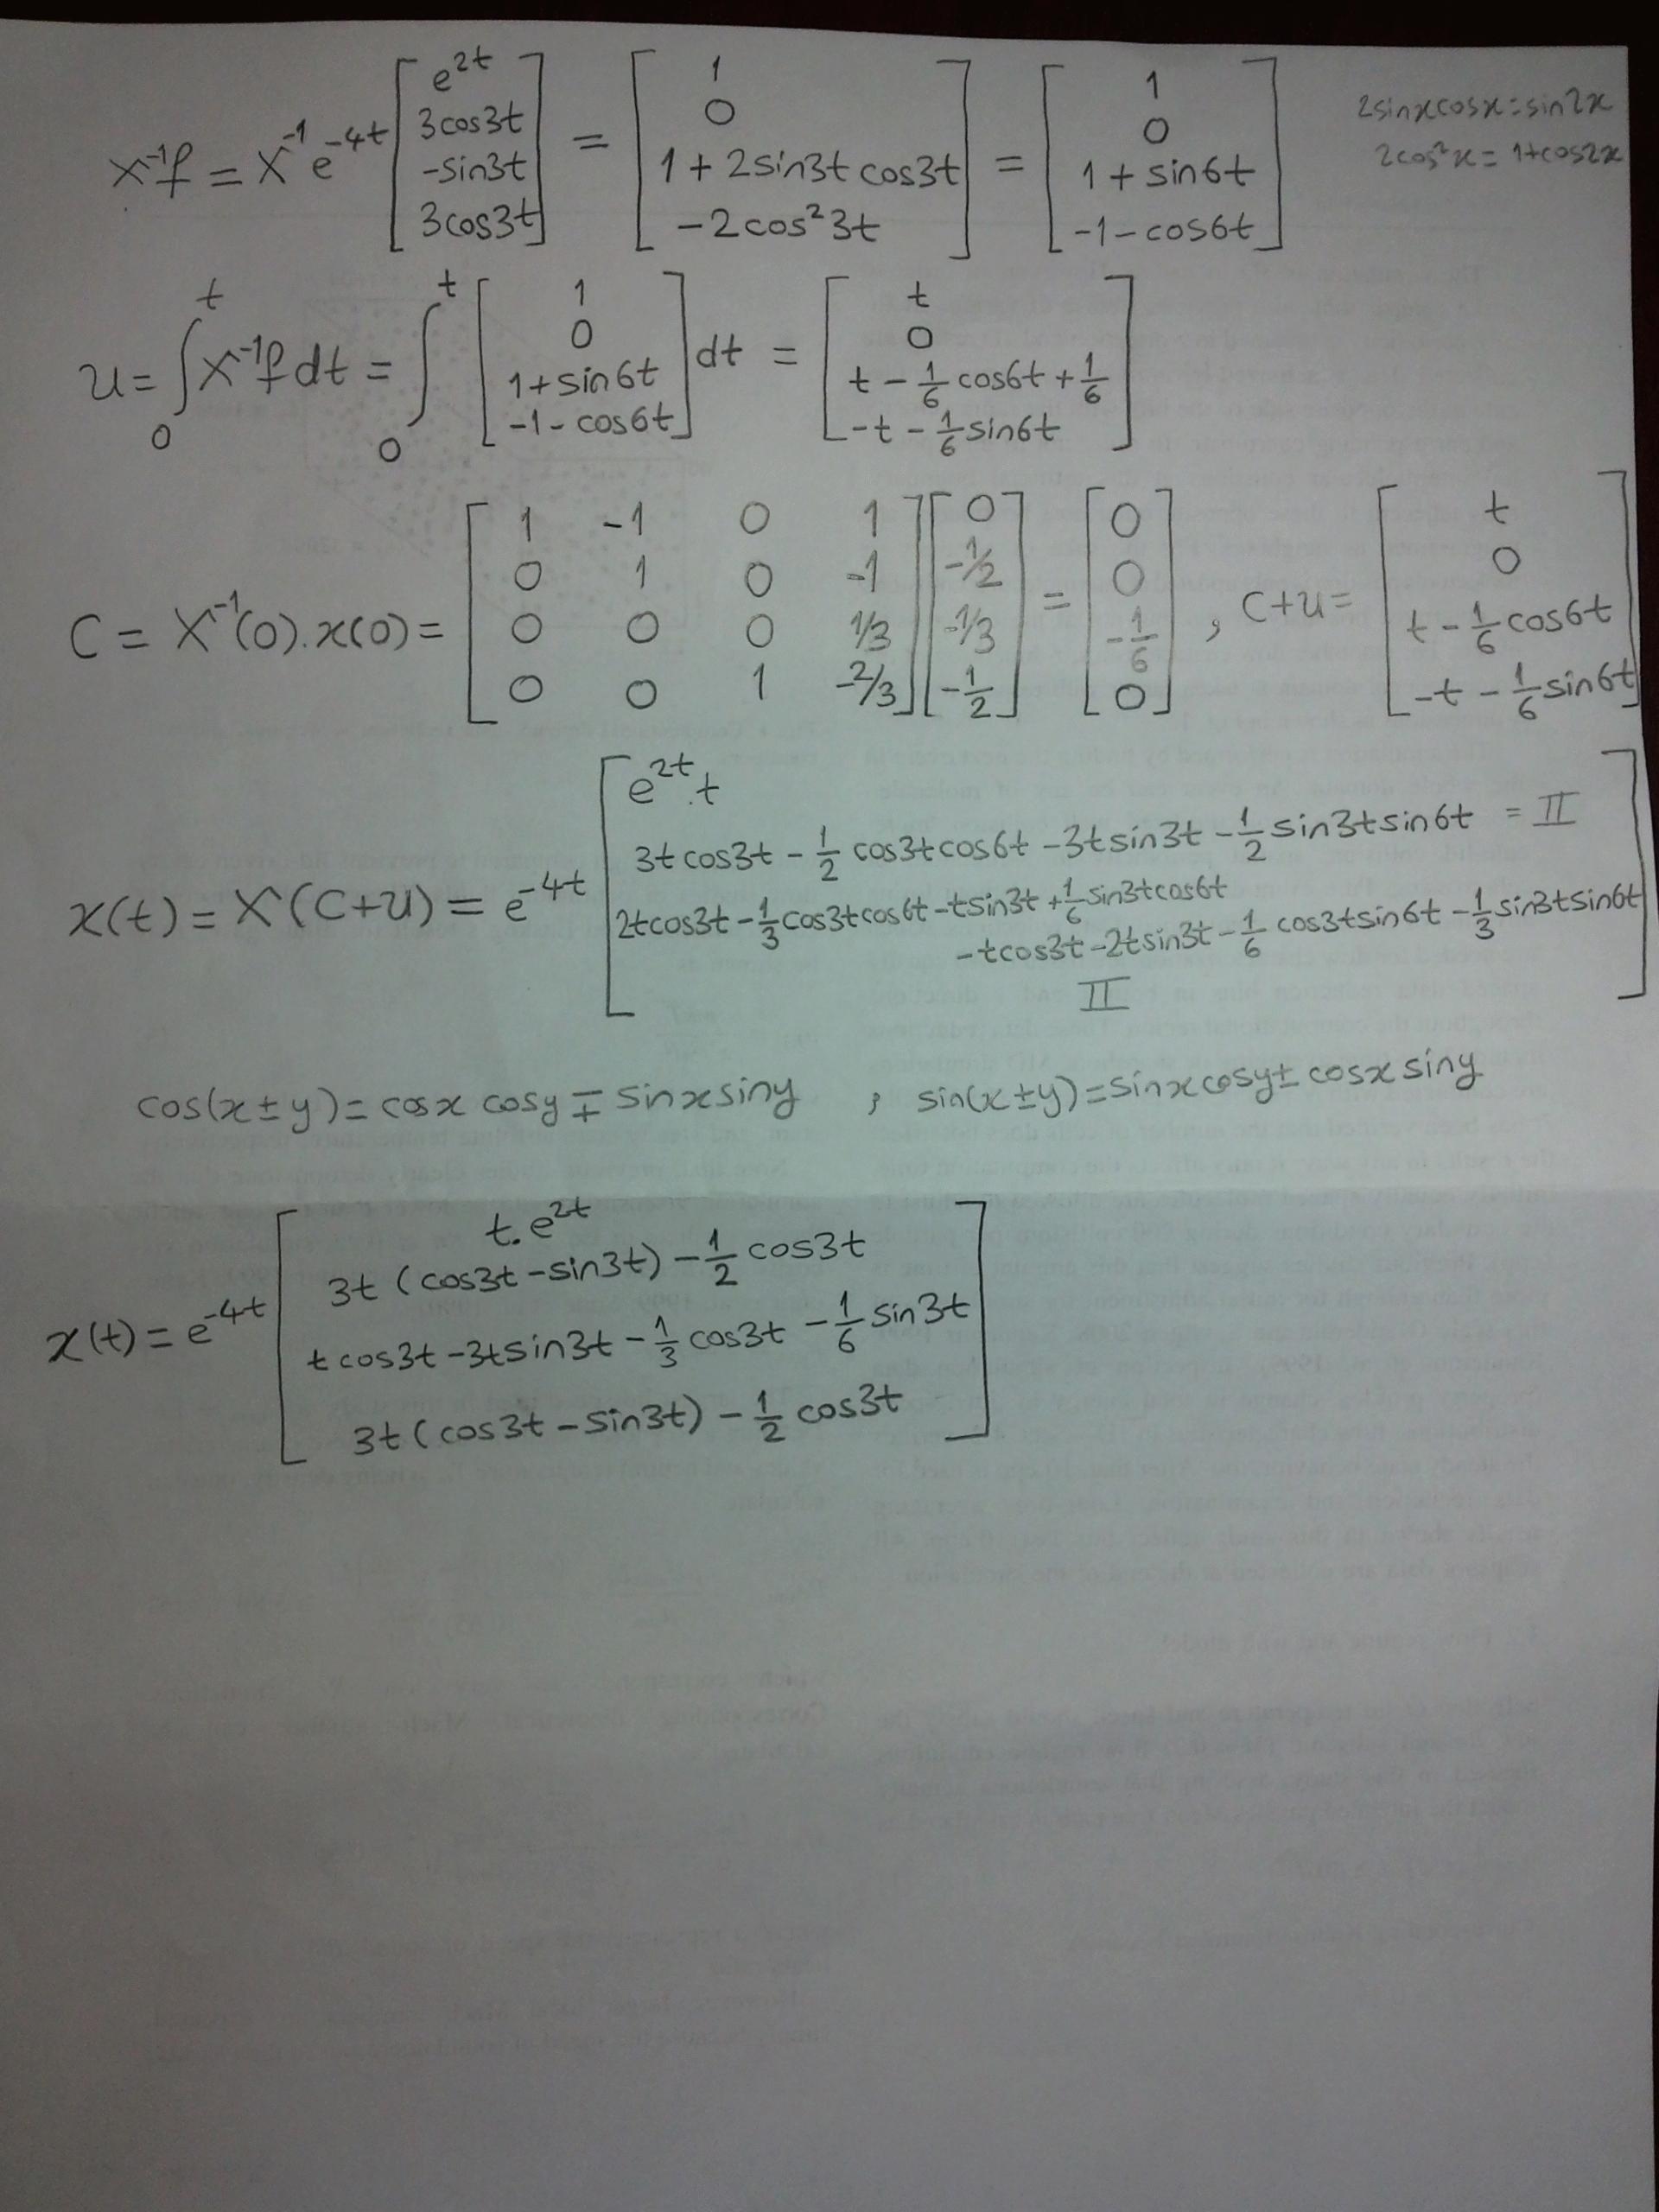 X⁻¹f = X⁻¹ e^{-4t} [e^{2t}; 3cos3t; -sin3t; 3cos3t] = [1; 0; 1 + 2sin3t cos3t; -2cos²3t] = [1; 0; 1 + sin6t; -1-cos6t]
2sinxcosx = sin2x
2cos²x = 1+cos2x
u = ∫₀ᵗ X⁻¹f dt = ∫₀ᵗ [1; 0; 1+sin6t; -1-cos6t] dt = [t; 0; t - 1/6 cos6t + 1/6; -t - 1/6 sin6t]
C = X⁻¹(0).x(0) = [1 -1 0 1; 0 1 0 -1; 0 0 0 1/3; 0 0 1 -2/3] [0; -1/2; -1/3; -1/2] = [0; 0; -1/6; 0] , C+u = [t; 0; t - 1/6 cos6t; -t - 1/6 sin6t]
x(t) = X(C+u) = e^{-4t} [e^{2t}.t; 3t cos3t - 1/2 cos3tcos6t - 3t sin3t - 1/2 sin3tsin6t = II; 2tcos3t - 1/3 cos3tcos6t - tsin3t + 1/6 sin3tcos6t - tcos3t - 2tsin3t - 1/6 cos3tsin6t - 1/3 sin3tsin6t; II]
cos(x±y) = cosx cosy ∓ sinxsiny , sin(x±y) = sinxcosy ± cosx siny
x(t) = e^{-4t} [t.e^{2t}; 3t (cos3t - sin3t) - 1/2 cos3t; t cos3t - 3tsin3t - 1/3 cos3t - 1/6 sin3t; 3t (cos3t - sin3t) - 1/2 cos3t]